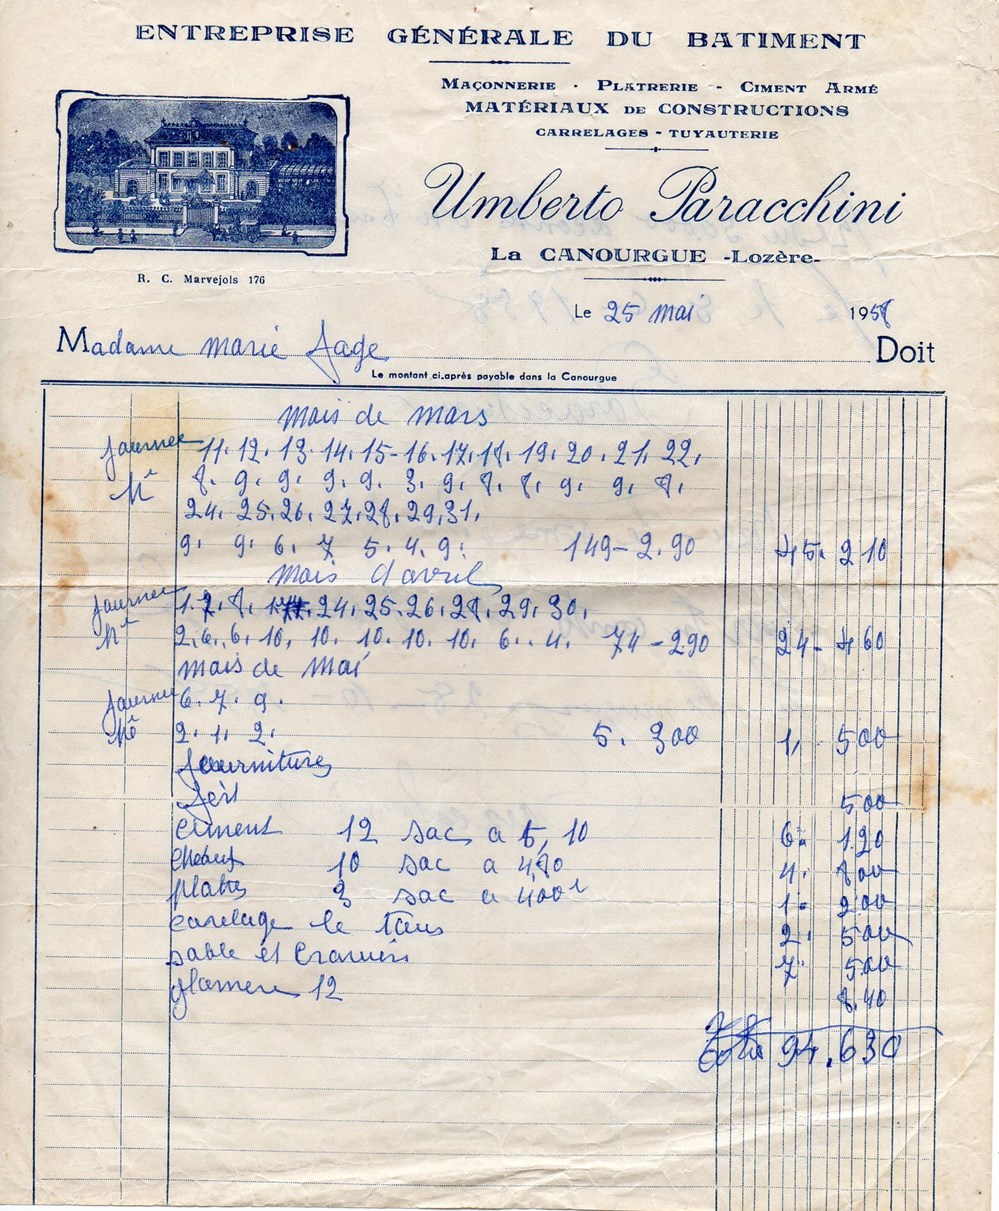 ENTREPRISE GÉNÉRALE DU BATIMENT
MAÇONNERIE · PLÂTRERIE - CIMENT ARMÉ
MATÉRIAUX DE CONSTRUCTIONS
CARRELAGES - TUYAUTERIE
Umberto Paracchini
LA CANOURGUE -Lozère-
R. C. Marvejols 176
Le 25 mai 1958
Madame marie fage Doit
Le montant ci.après payable dans la Canourgue
mais de mars
journee 11. 12. 13. 14. 15- 16. 17. 18. 19. 20. 21. 22.
8. 9. 9. 9. 9. 3. 9. 8. 8. 9. 9. 8.
24. 25. 26. 27. 28. 29. 31.
9. 9. 6. 7 5. 4. 9. 149-2.90 45. 210
mais d'avril
journee 1. 7. 8. 24. 25. 26. 28. 29. 30.
2. 6. 6. 10. 10. 10. 10. 10. 6. 4. 74-290 24- 460
mais de mai
journee 6. 7. 9.
2. 1. 2. 5. 300 1, 500
fournitures
fert 500
ciment 12 sac a 5, 10 6- 120
10 sac a 480 4. 800
platre 3 sac a 400 1- 200
carelage le tous 2. 500
sable et Cravier 7- 500
12 8.40
94.630